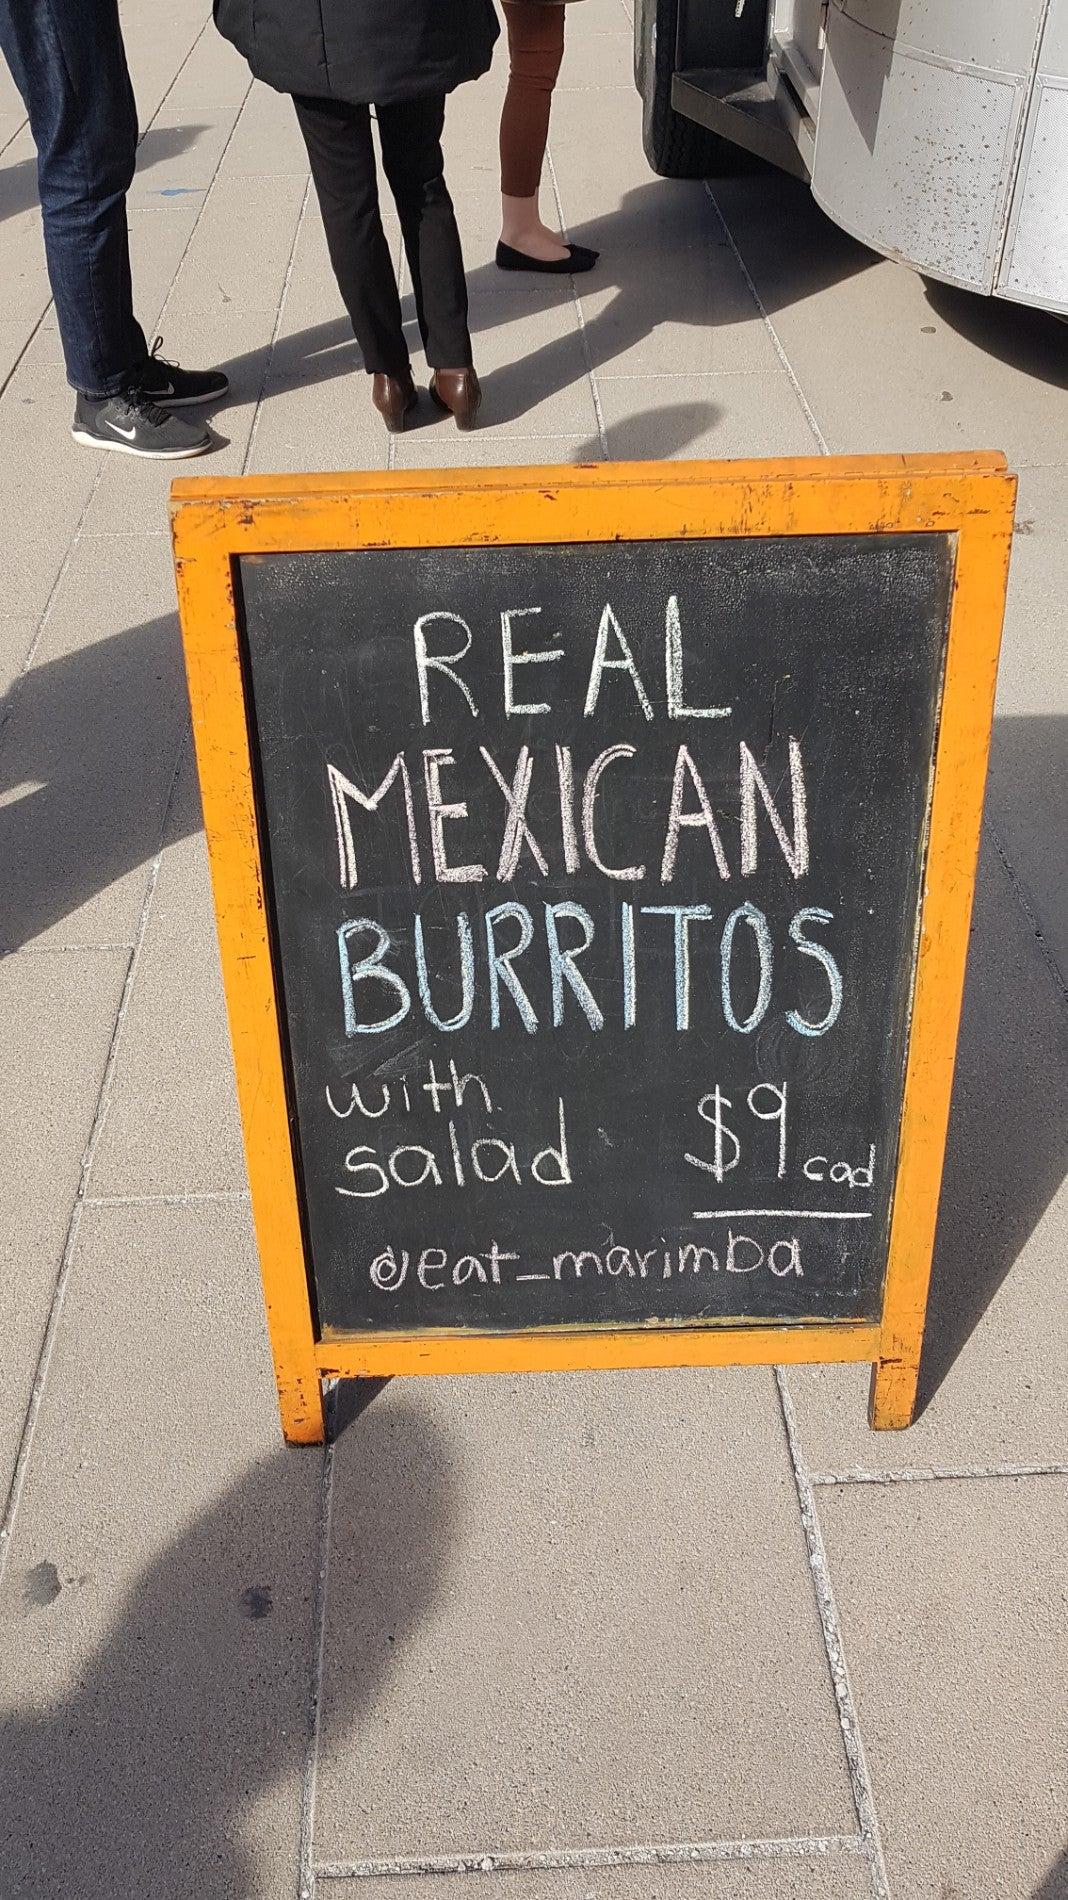 REAL
MEXICAN
BURRITOS
with
salad $9 cad
@eat_marimba